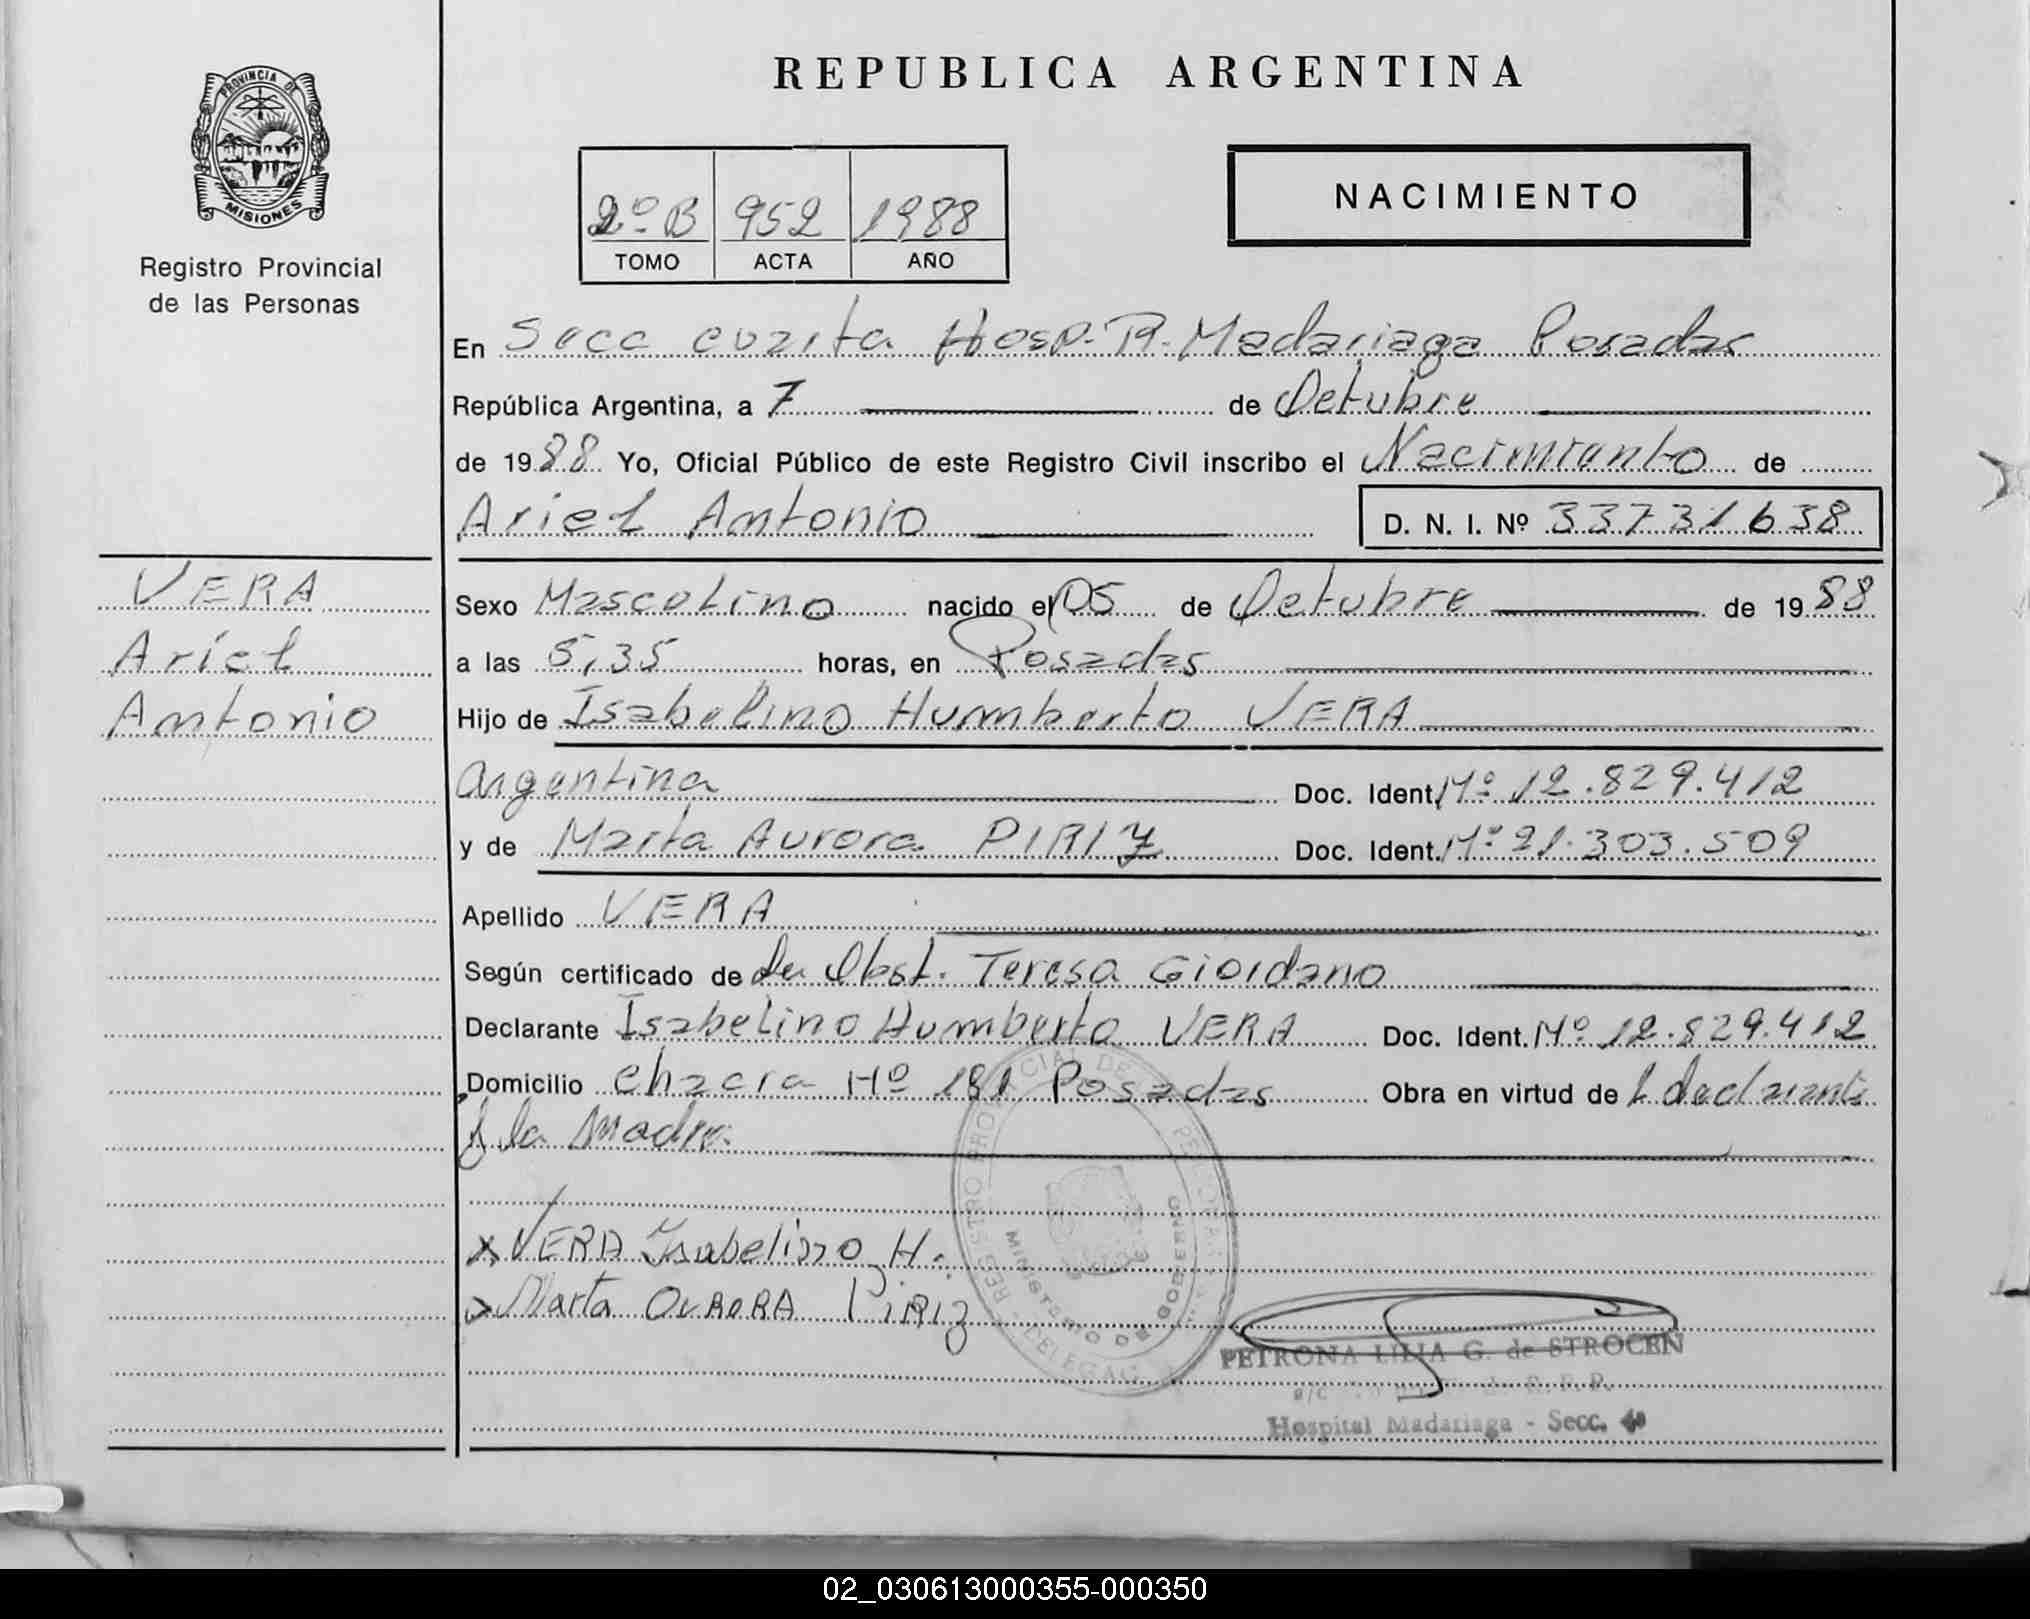 PROVINCIA DE
MISIONES
Registro Provincial
de las Personas
REPUBLICA ARGENTINA
2º B 952 1988
TOMO ACTA AÑO
NACIMIENTO
En Secc cuarta Hosp. R. Madariaga Posadas
República Argentina, a 7 de Octubre
de 1988 Yo, Oficial Público de este Registro Civil inscribo el Nacimiento de
Ariel Antonio D. N. I. Nº 33731638
VERA
Ariel
Antonio
Sexo Masculino nacido el 05 de Octubre de 1988
a las 5,35 horas, en Posadas
Hijo de Isabelino Humberto VERA
Argentina Doc. Ident. Mº 12.829.412
y de Marta Aurora PIRIZ Doc. Ident. Mº 21.303.509
Apellido VERA
Según certificado de la Obst. Teresa Giordano
Declarante Isabelino Humberto VERA Doc. Ident. Mº 12.829.412
Domicilio Chacra Nº 181 Posadas Obra en virtud de l declarante
y la Madre
x VERA Isabelino H.
x Marta OURORA PiRiz
REGISTRO PROVINCIAL DE
MINISTERIO DE GOBIERNO
PETRONA LILIA G. de STROCEN
Hospital Madariaga - Secc. 4ª
02_030613000355-000350